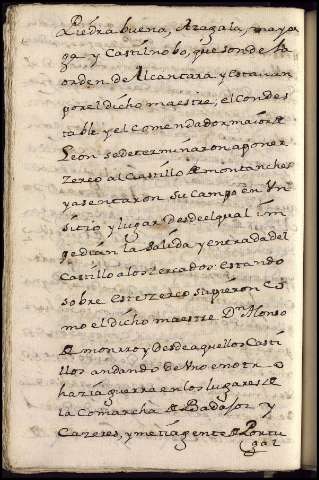 Piedra buena, Azagala, mayor
ga y Castilnobo, que son de la
orden de Alcantara y estauan
por el dicho maestre, el Condes
table y el Comendador maior de
Leon se determinaron a poner
zerco al Castillo de montanches
y asentaron su campo en Vn
sitio y lugar desde el qual im
pedian la salida y entrada del
Castillo a los zercados: estando
sobre este zerco supieron co
mo el dicho maestre Dn Alonso
de monrroy desde aquellos Casti
llos andando de Vno en otro
hazia guerra en los lugares de
la Comarcha de Badajoz y
Cazeres, y metia gente de Portu
gal